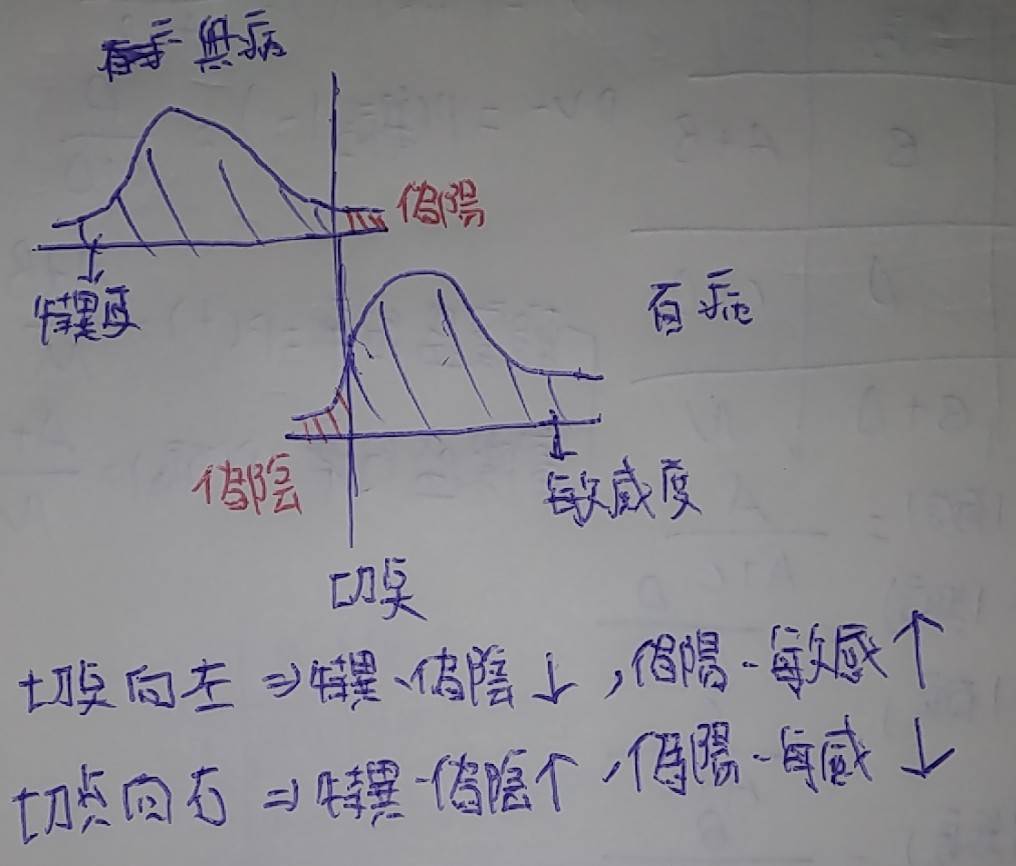 無病
偽陽
特異度
有病
偽陰
敏感度
切點
切點向左 ⇒ 特異、偽陰↓,偽陽、敏感↑
切點向右 ⇒ 特異、偽陰↑,偽陽、敏感↓